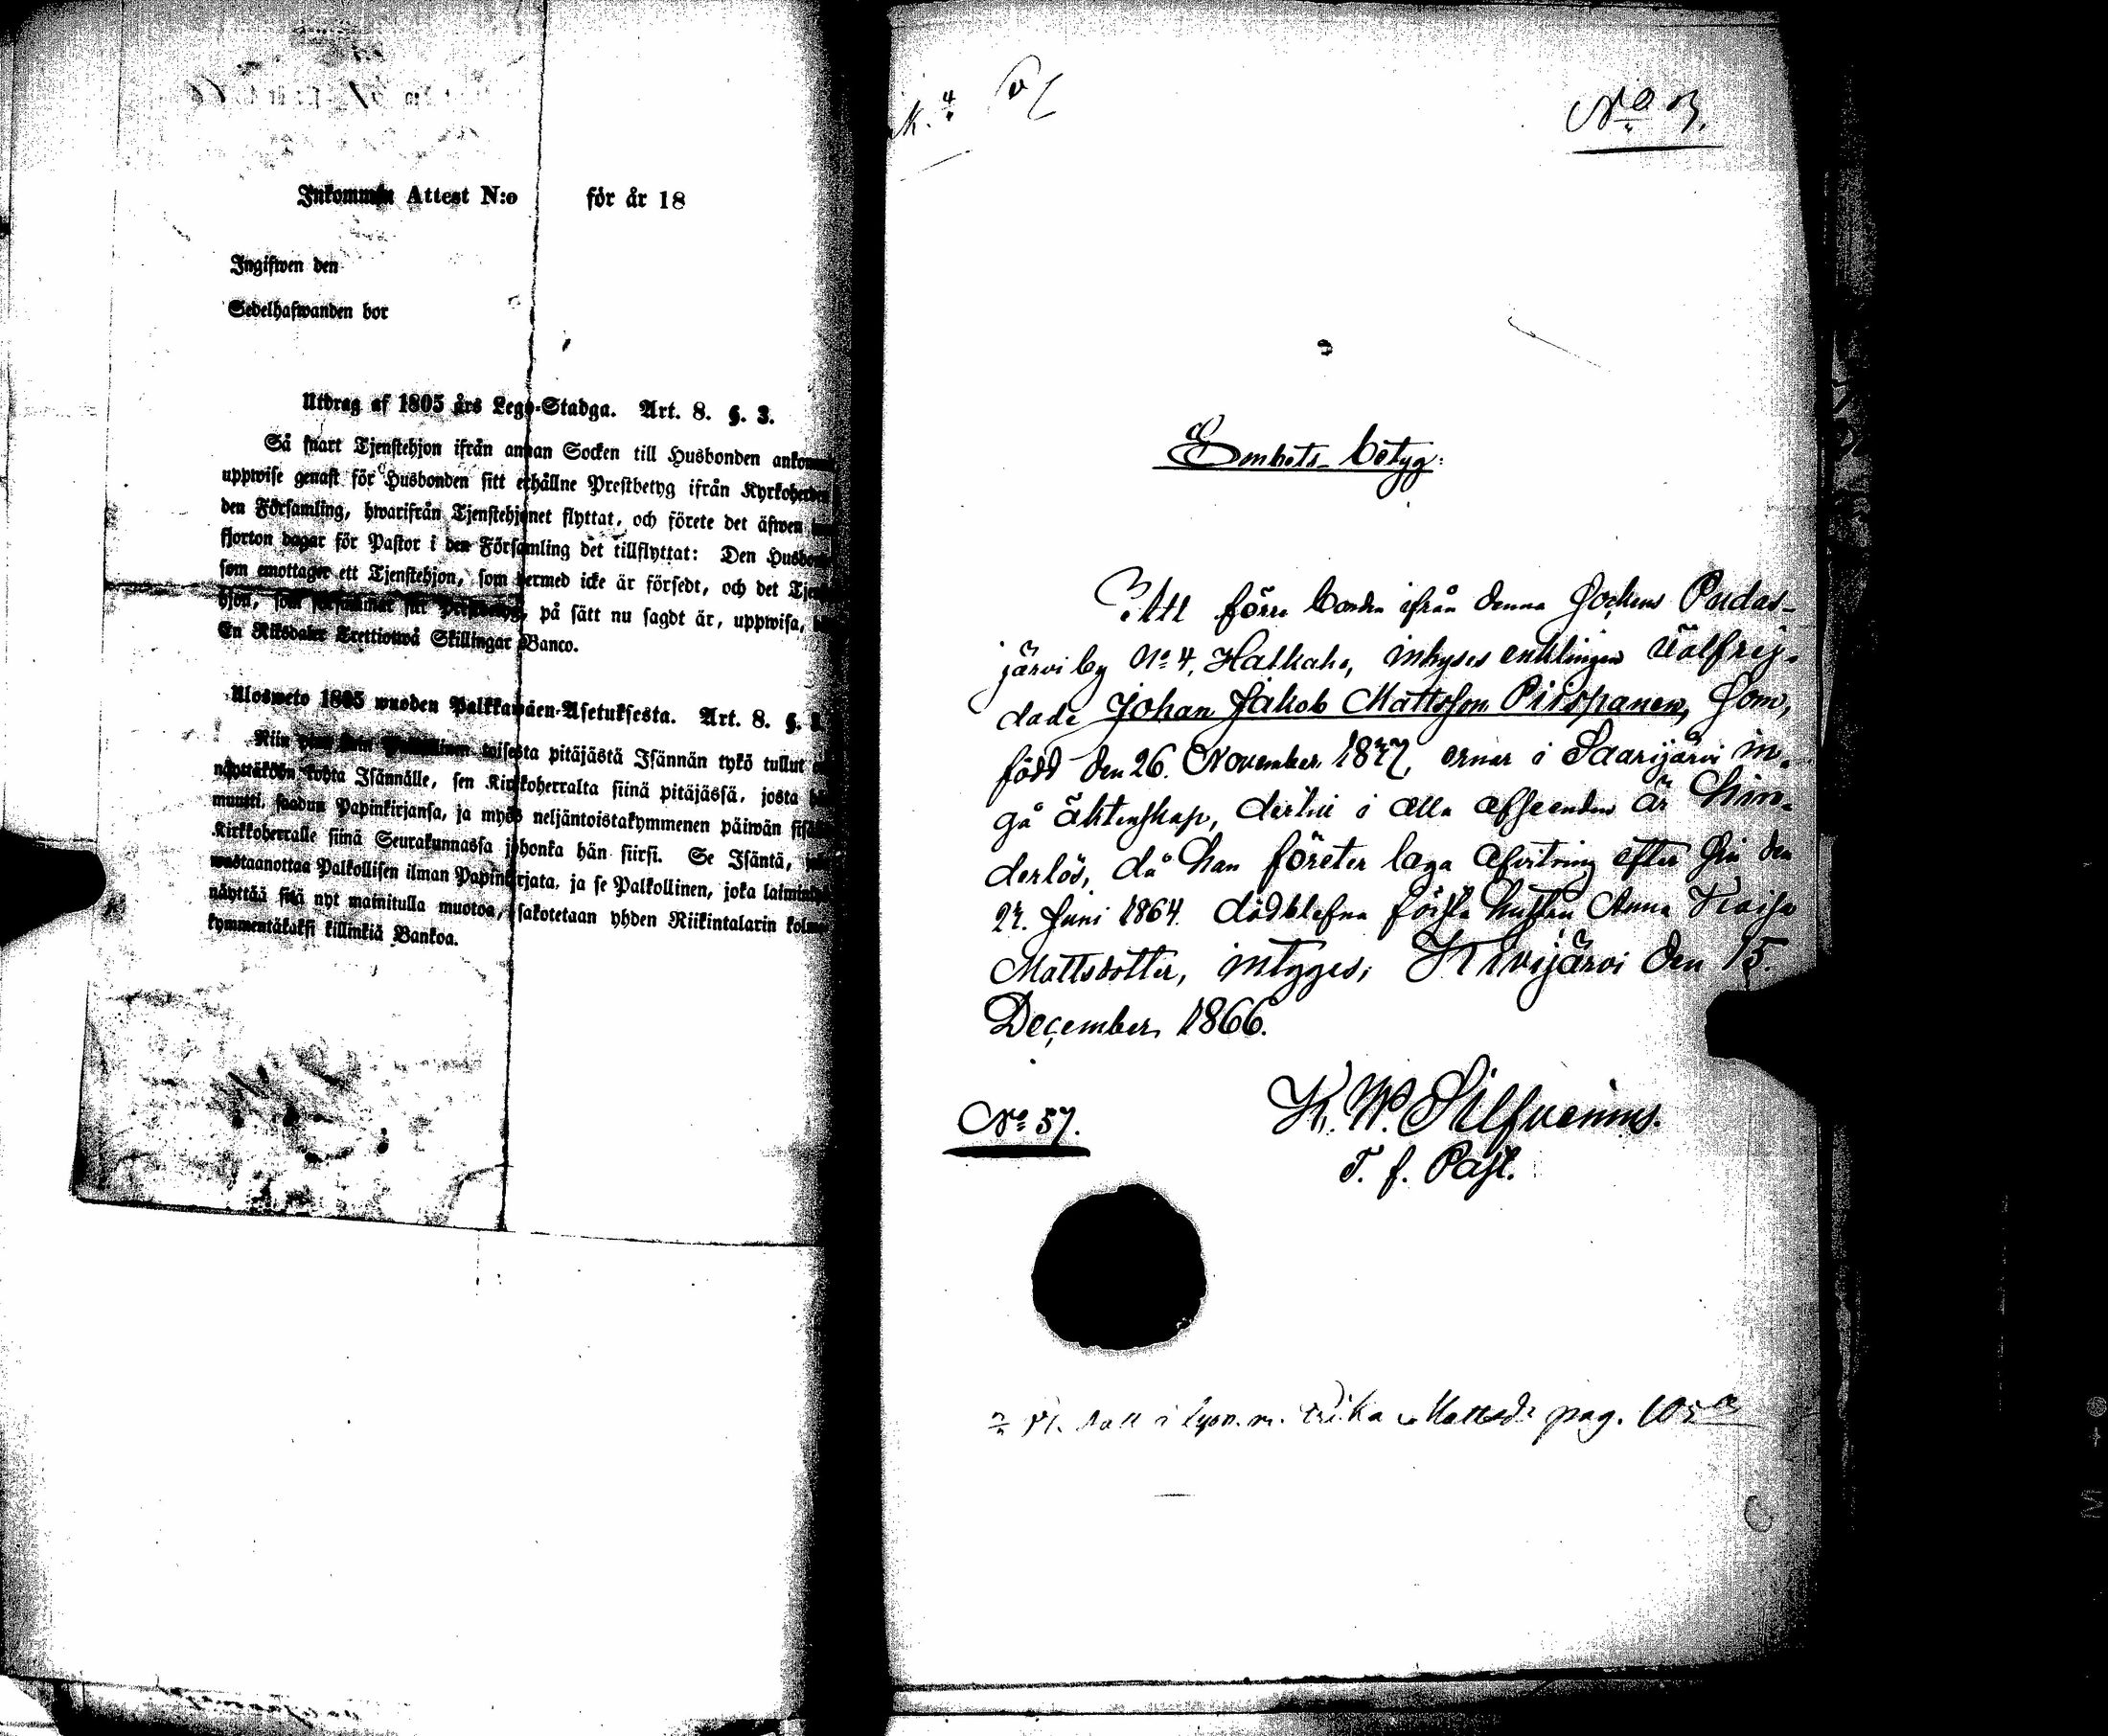 Inkommen Attest N:o för år 18
Ingifwen den
Sedelhafwanden bor
Utdrag af 1805 års Lego-Stadga. Art. 8. §. 3.
Så snart Tjenstehjon ifrån annan Socken till Husbonden
uppwise genast för Husbonden sitt erhållne Prestbetyg ifrån Kyrkoherden
den Församling, hwarifrån Tjenstehjonet flyttat, och förete det äfwen
fjorton dagar för Pastor i den Församling det tillflyttat: Den
som emottager ett Tjenstehjon, som dermed icke är försedt, och det
hjon, som försummar sitt Prestbetyg, på sätt nu sagdt är, uppwisa,
En Riksdaler Trettiotwå Skillingar Banco.
Ulosweto 1805 wuoden Palkkawäen-Asetuksesta. Art. 8. §.
Niin toisesta pitäjästä Isännän tykö tullut
näyttäköön kohta Isännälle, sen Kirkkoherralta siinä pitäjässä, josta
muutti, saadun Papinkirjansa, ja myös neljäntoistakymmenen päiwän
Kirkkoherralle siinä Seurakunnassa johonka hän siirsi. Se Isäntä,
wastaanottaa Palkollisen ilman Papinkirjata, ja se Palkollinen, joka
näyttää sitä nyt mainitulla muotoa, sakotetaan yhden Riikintalarin
kymmentäkaksi killinkiä Bankoa.
No 3.
Embets-betyg:
Att förre bonden ifrån denna Sockens Pudas-
järvi by No 4, Halkaho, inhyses enklingen
dade Johan Jakob Mattsson Piispanen, som,
född den 26. November 1827, ernar i Saarijärvi in-
gå äktenskap, dertill i alla afseenden är hin-
derlös, då han företer laga afvitring efter sin den
27. Juni 1864 dödblefna första hustru Anna Kaisa
Mattsdotter, intygges; Kivijärvi den 15.
December 1866.
No 57.
K. W. Silfvenius.
T. f. Past.
Mattsdr pag.